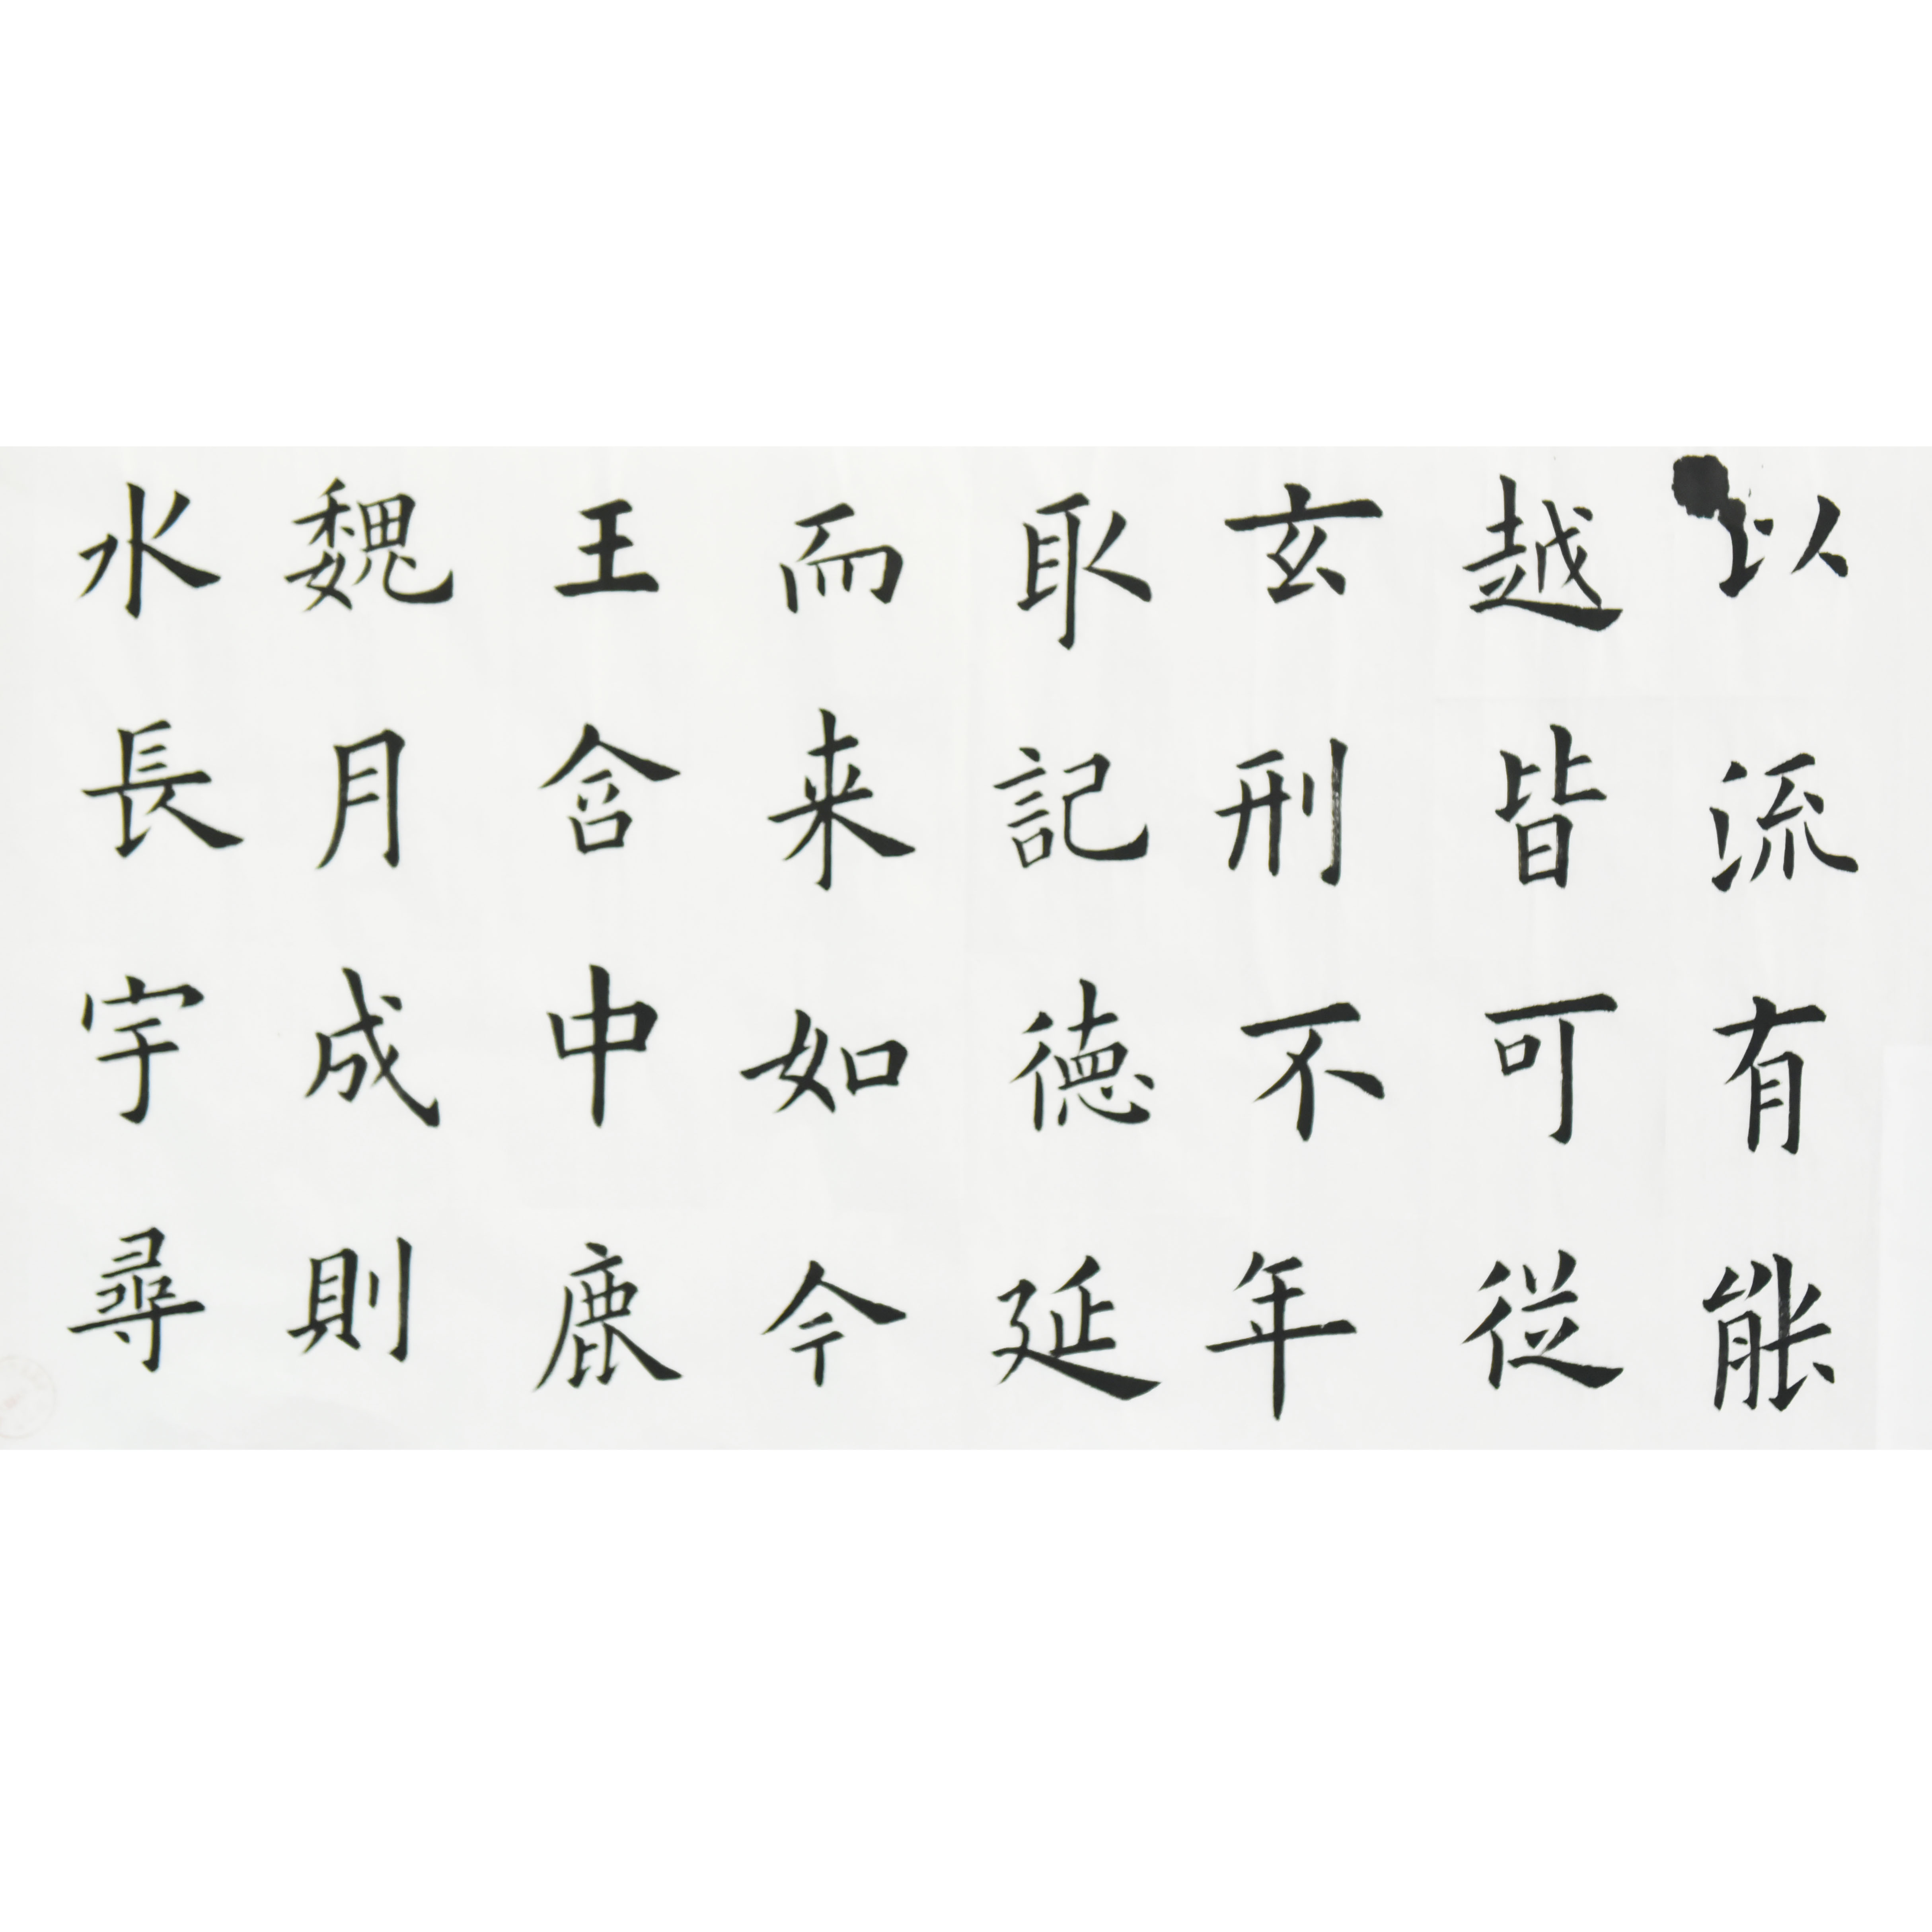 以流有能
越皆可從
玄刑不年
取記德延
而来如今
王含中鹿
魏月成則
水長宇尋